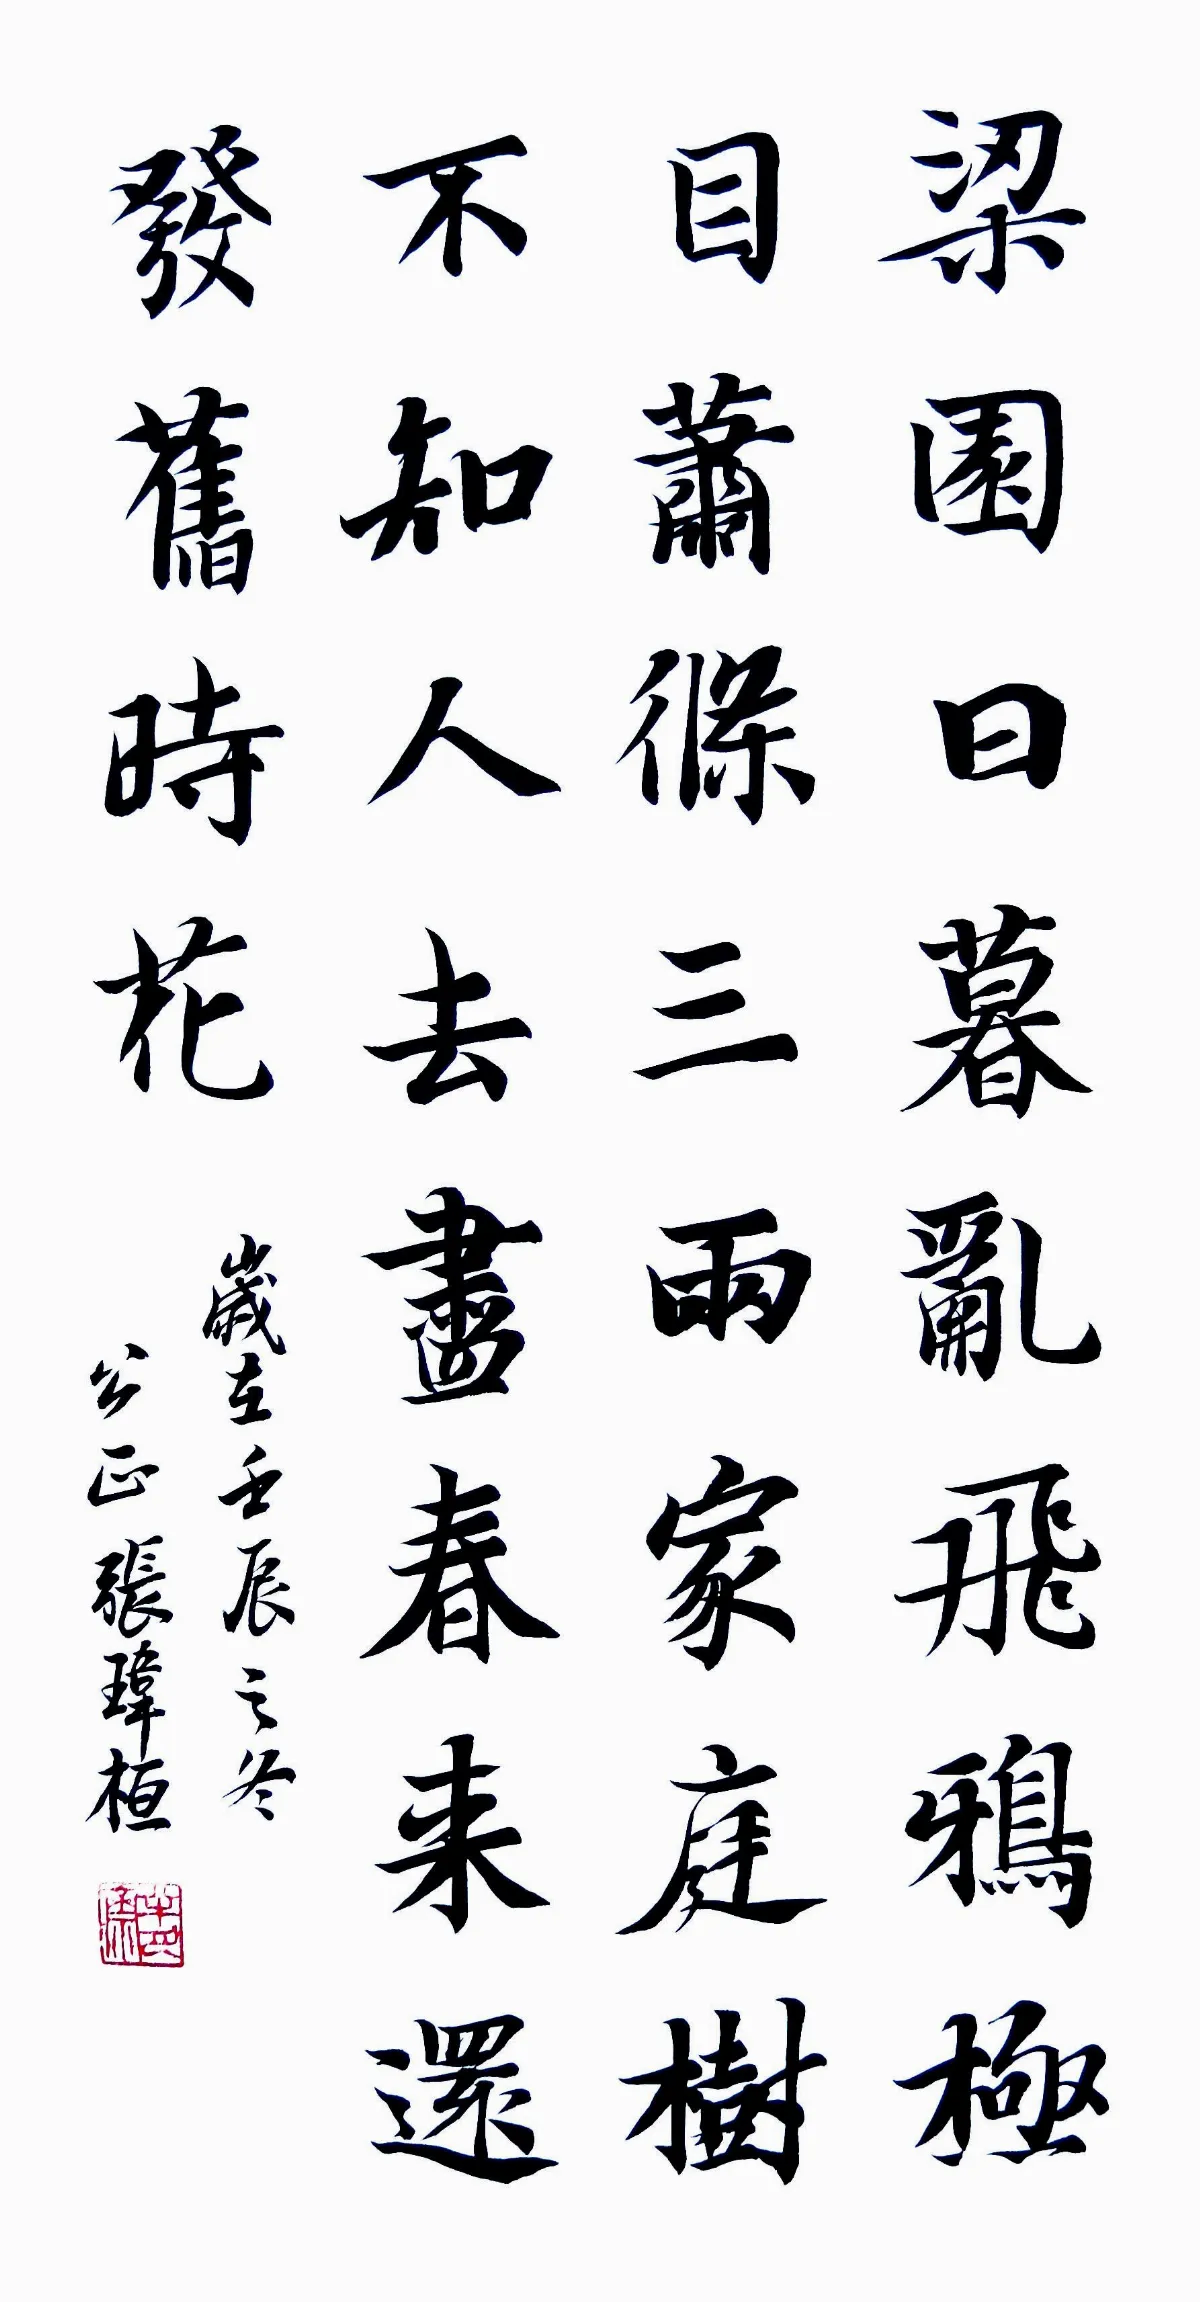 梁園日暮亂飛鴉極
目蕭條三兩家庭樹
不知人去盡春来還
發舊時花
歲在壬辰之冬
公正張瑋桓